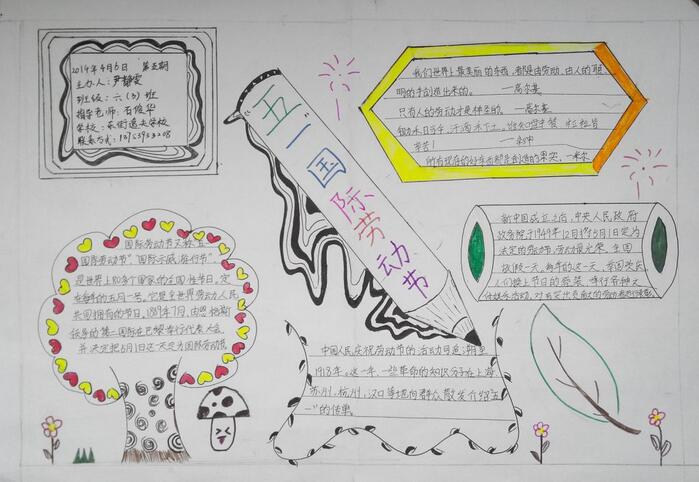 2014年4月6日 第五期
主办人：尹静雯
班级：六（3）班
指导老师：石俊华
学校：东街逸夫学校
联系方式：13963953208
五一国际劳动节
我们世界上最美丽的东西，都是由劳动、由人的聪
明的手创造出来的。 ——高尔基
只有人的劳动才是神圣的。——高尔基
锄禾日当午，汗滴禾下土。谁知盘中餐 粒粒皆
辛苦！ ——李绅
所有现存的好东西都是创造的果实。——米尔
新中国成立之后，中央人民政府
政务院于1949年12月将5月1日定为
法定的劳动节，劳动最光荣，全国
放假一天。每年的这一天，举国欢庆，
人们换上节日的盛装，举行各种文
国际劳动节又称"五一
国际劳动节"、"国际示威游行节"
是世界上80多个国家的全国性节日。定
在每年的五月一号。它是全世界劳动人民
共同拥有的节日，1889年7月，由恩格斯
领导的第二国际在巴黎举行代表大会。
并决定把5月1日这一天定为国际劳动节
中国人民庆祝劳动节的活动可追溯至
1918年。这一年，一些革命的知识分子在上海
苏州、杭州、汉口等地向群众散发介绍"五
一"的传单。